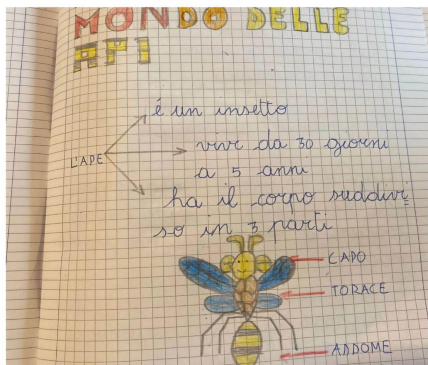 MONDO DELLE
API
è un insetto
L'APE
vive da 30 giorni
a 5 anni
ha il corpo suddivi
so in 3 parti
CAPO
TORACE
ADDOME